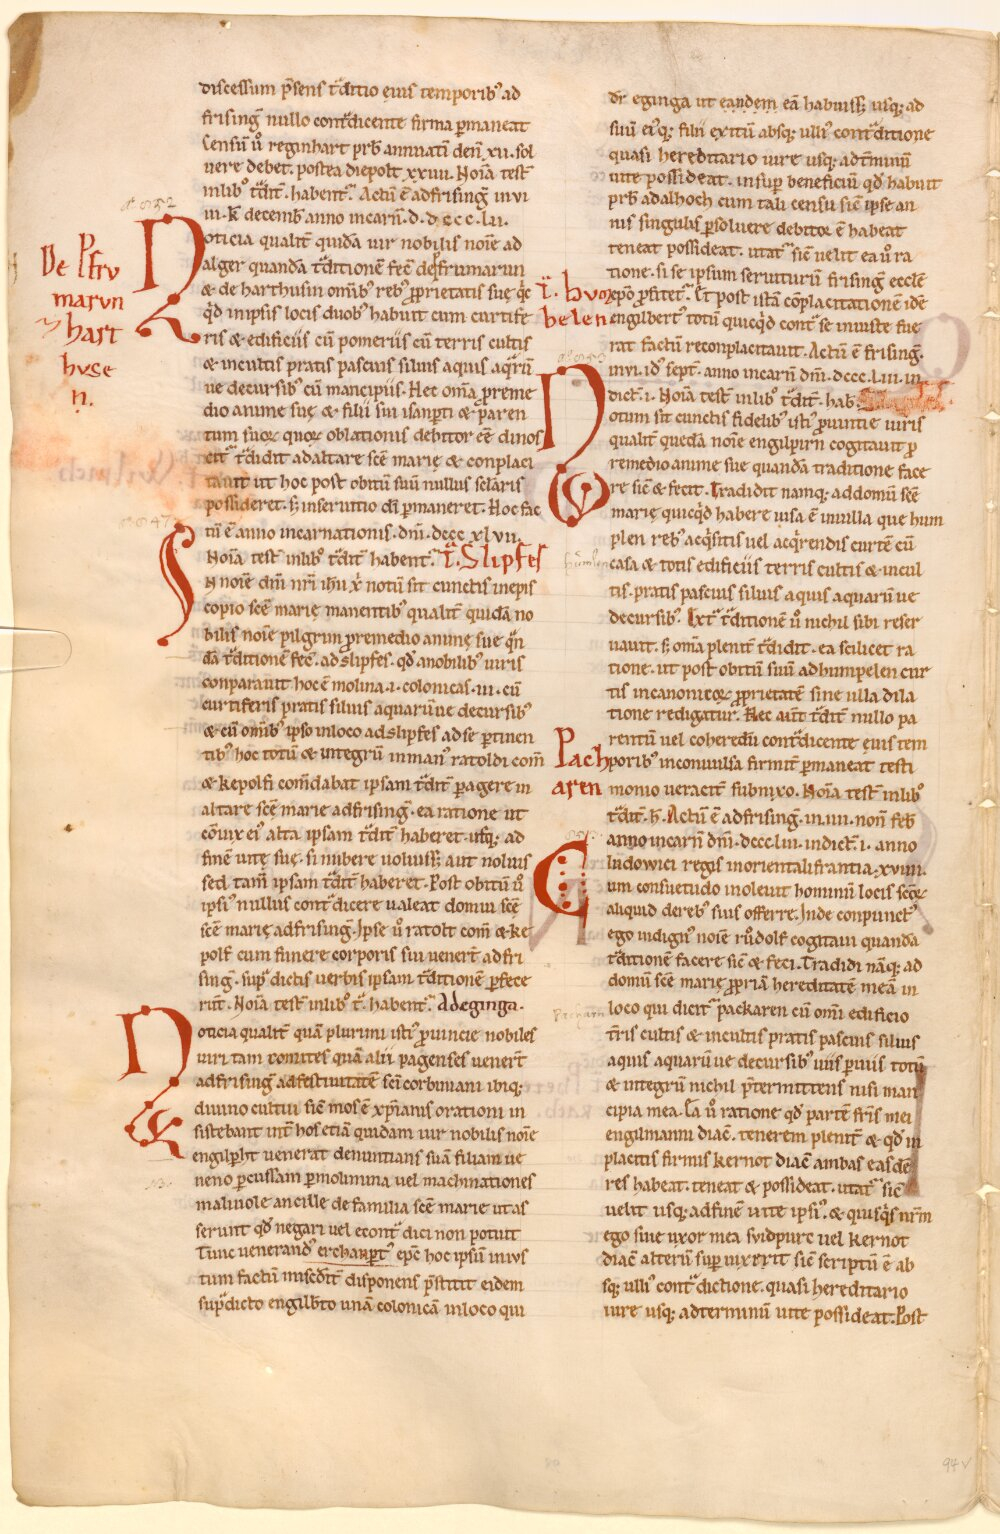 discessum p̄sens t̄ditio eius temporib᷒ ad
frising̅ nullo cont̄dicente firma p̱maneat
Censū ů reginhart prb̅ annuatī den̄ xii. sol
uere debet. postea diepolt xxiiii. Noīa test̄
in lib᷒ t̄dit̄. habent᷑. Actū ē ad frising̅ in vi
iii. k̄ decemb̅ anno incarn̄. d. dccc. lii.
Noticia qualit̄ quidā uir nobilis noīe ad
alger quandā t̄ditionē fec̄ de pfrumarun
& de harthusin omib᷒ reb᷒ p̱prietatis suę q̄c
qd̄ in ipsis locis duob᷒ habuit cum curtife
ris & edificiis cū pomeriis cū terris cultis
& incultis pratis pascuis siluis aquis aqrū
ue decursib᷒ cū mancipiis. Hec om̄a p̱reme
dio anime suę & filii sui isanp̱ti & paren
tum suoꝝ quoꝝ oblationis debitor ēē dinos
cit᷑ t̄didit ad altare scē marię & conplaci
tauit ut hoc post obitū suū nullus selaris
possideret. s; in seruitio d̄i p̱maneret. Hoc fac
tū ē anno incarnationis. dn̄i. dccc xlvii.
Noīa test̄ in lib᷒ t̄dit̄ habent᷑. T̄. Slipfes
In noīe dn̄i nr̄i ih̅u x̄ notū sit cunctis in epis
copio scē marię manentib᷒ qualit̄ quidā no
bilis noīe pilgrim p̱remedio animę suę q̄n
dā t̄ditionē fec̄. ad slipfes. qd̄ a nobilib᷒ uiris
conparauit hoc ē molina. i. colonicas. iii. cū
curtiferis pratis siluis aquarū ue decursib᷒
& cū omib᷒ ipso in loco ad slipfes ad se p̱tinen
tib᷒ hoc totū & integrū in man᷒ ratoldi com̄
& kepolfi com̄dabat ipsam t̄dit̄ p̱agere in
altare scē marie ad frising̅. ea ratione ut
cōiux ei᷒ alta ipsam t̄dit̄ haberet. usq; ad
finē uitę suę. si nubere uoluiss; aut noluis
sed tam̄ ipsam t̄dit̄ haberet. Post obitū ů
ipsi᷒ nullus cont̄dicere ualeat domui scē
scē marię ad frising̅. Ipse ů ratolt com̄ & ke
polf cum funere corporis sui uenert̄ ad fri
sing̅. sup̄dictis uerbis ipsam t̄ditionē p̱fece
rūt. Noīa test̄ in lib᷒ t̄. habent᷑. Ad eginga.
Noticia qualit̄ quā plurimi isti᷒ p̱uincie nobiles
uiri tam comites quā alii pagenses uenert̄
ad frising̅ ad festiuitatē scī corbiniani ibiq;
diuino cultui sic̄ mos ē xp̄ianis orationi in
sistebant int̄ hos etiā quidam uir nobilis noīe
engilp̱ht uenerat denuntians suā filiam ue
neno p̱cussam p̱ molimina uel machinationes
maliuole ancille de familia scē marie ut as
serunt qd̄ negari uel econt̄ dici non potuit
Tunc uenerand᷒ erchanp̱t᷒ ep̄c hoc ipsū inius
tum factū misc̄dit̄ disponens p̄stitit eidem
sup̄dicto engilb̄to unā colonicā in loco qui
De Pfru
marun
& hart
huse
n.
dr̄ eginga ut eandem eā habuiss; usq; ad
suū ei᷒q; filii exitū absq; ulli᷒ cont̄ditione
quasi hereditario iure usq; ad t̄minū
uite possideat. insup̱ beneficiū qd̄ habuit
prb̅ adalhoch cum tali censu sic̄ ipse an
nis singulis p̱soluere debitor ē habeat
teneat possideat. utat᷑ sic̄ uelit ea ů ra
tione. si se ipsum seruiturū frising̅ ecclē
ep̄o p̱fitet᷑. Et post istā cōplacitationē idē
engilbert᷒ totū quicqd̄ cont̄ se iniuste fue
rat factū reconplacitauit. Actū ē frising̅.
in vi. id᷒ sept̄. anno incarn̄ dn̄i. dccc. liii. in
dict̄. i. Noīa test̄ in lib᷒ t̄dit̄. hab.
T̄. huom
belen
Notum sit cunctis fidelib᷒ isti᷒ p̱uintie iuris
qualit̄ quedā noīe engilpirin cogitauit p̱
remedio anime sue quandā traditione face
re sic̄ & fecit. Tradidit namq; ad domū scē
marię quicqd̄ habere uisa ē in uilla que hum
plen reb᷒ acq̄sitis uel acq̄rendis curtē cū
casa & totis edificiis terris cultis & incul
tis. pratis pascuis siluis aquis aquarū ue
decursib᷒. Ext᷑ t̄ditionē ů nichil sibi reser
uauit. s; om̄a plenit̄ t̄didit. ea scilicet ra
tione. ut post obitū suū ad humpelen cur
tis in canonicoꝝ p̱prietatē sine ulla dila
tione redigatur. Hec aut̄ t̄dit̄ nullo pa
rentū uel coheredū cont̄dicente eius tem
porib᷒ inconuulsa firmit̄ p̱maneat testi
monio ueracit̄ subnixo. Noīa test̄ in lib᷒
t̄dit̄. h̅. Actū ē ad frising̅. in. iiii. non̄ feb̅
anno incarn̄ dn̄i. dccc. liii. indict̄. i. anno
ludowici regis in orientali frantia. xviiii.
Pach
aren
Cum consuetudo inoleuit hominū locis scōꝝ
aliquid de reb᷒ suis offerre. Inde conpunct᷒
ego indign᷒ noīe růdolf cogitaui quandā
t̄ditionē facere sic̄ & feci. Tradidi nāq; ad
domū scē marię p̱priā hereditatē meā in
loco qui dicit᷑ packaren cū omi edificio
t̄ris cultis & incultis pratis pascuis siluis
aquis aquarū ue decursib᷒ uiis p̱uiis totū
& integrū nichil p̄termittens nisi man
cipia mea. Ea ů ratione qd̄ partē fr̄is mei
engilmanni diac̄. tenerem plenit̄ & qd̄ in
placitis firmis kernot diac̄ ambas easdē
res habeat. teneat & possideat. utat᷑ sic̄
uelit usq; ad finē uite ipsi᷒. & quisq̄s nr̄m
ego siue uxor mea suidpurc uel kernot
diac̄ alterū sup̱uixerit sic̄ scriptū ē ab
sq; ulli᷒ cont̄dictione. quasi hereditario
iure usq; ad terminū uite possideat. Post
94v